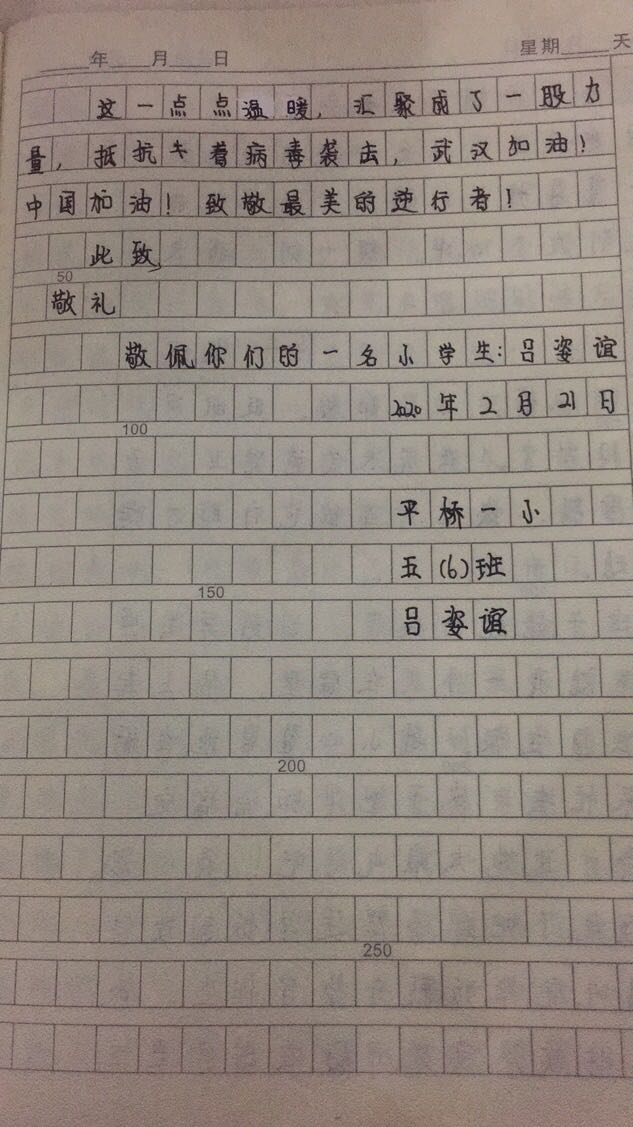 年 月 日 星期 天
这一点点温暖，汇聚成了一股力
量，抵抗失着病毒袭击，武汉加油！
中国加油！致敬最美的逆行者！
此致
50
敬礼
敬佩你们的一名小学生：吕姿谊
2020年2月21日
100
平桥一小
五(6)班
150
吕姿谊
200
250